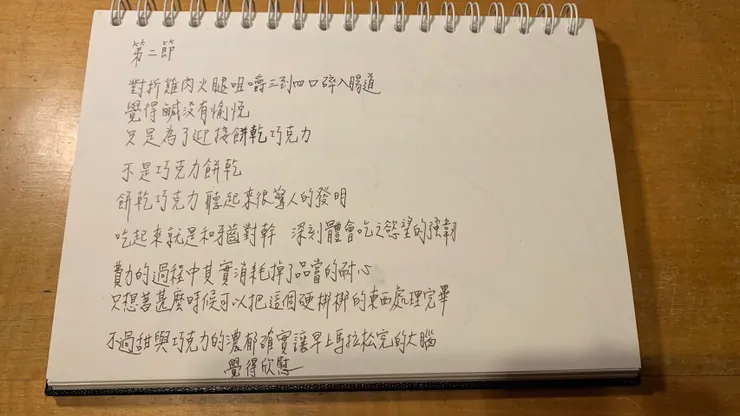 第二節
對折雞肉火腿咀嚼三到四口碎入腸道
覺得鹹沒有愉悅
只是為了迎接餅乾巧克力
不是巧克力餅乾
餅乾巧克力聽起來很驚人的發明
吃起來就是和牙齒對幹 深刻體會吃之慾望的強韌
費力的過程中其實消耗掉了品嘗的耐心
只想著甚麼時候可以把這個硬梆梆的東西處理完畢
不過甜與巧克力的濃郁確實讓早上馬拉松完的大腦
覺得欣慰